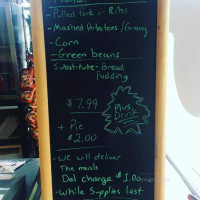 -Pulled Pork or Ribs
-Mashed Potatoes/Gravy
-Corn
-Green beans
Substitute- Bread
Pudding
$7.99
Plus
Drink
+ Pie
$2.00
-we will deliver
The meals
Del charge $1.00
-While Supplies last